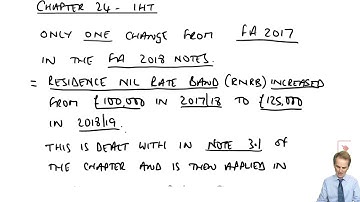 CHAPTER 24 - IHT
ONLY ONE CHANGE FROM FA 2017
IN THE FA 2018 NOTES.
= RESIDENCE NIL RATE BAND (RNRB) INCREASED
FROM £100,000 IN 2017/18 TO £125,000
IN 2018/19.
THIS IS DEALT WITH IN NOTE 3.1 OF
THE CHAPTER AND IS THEN APPLIED IN